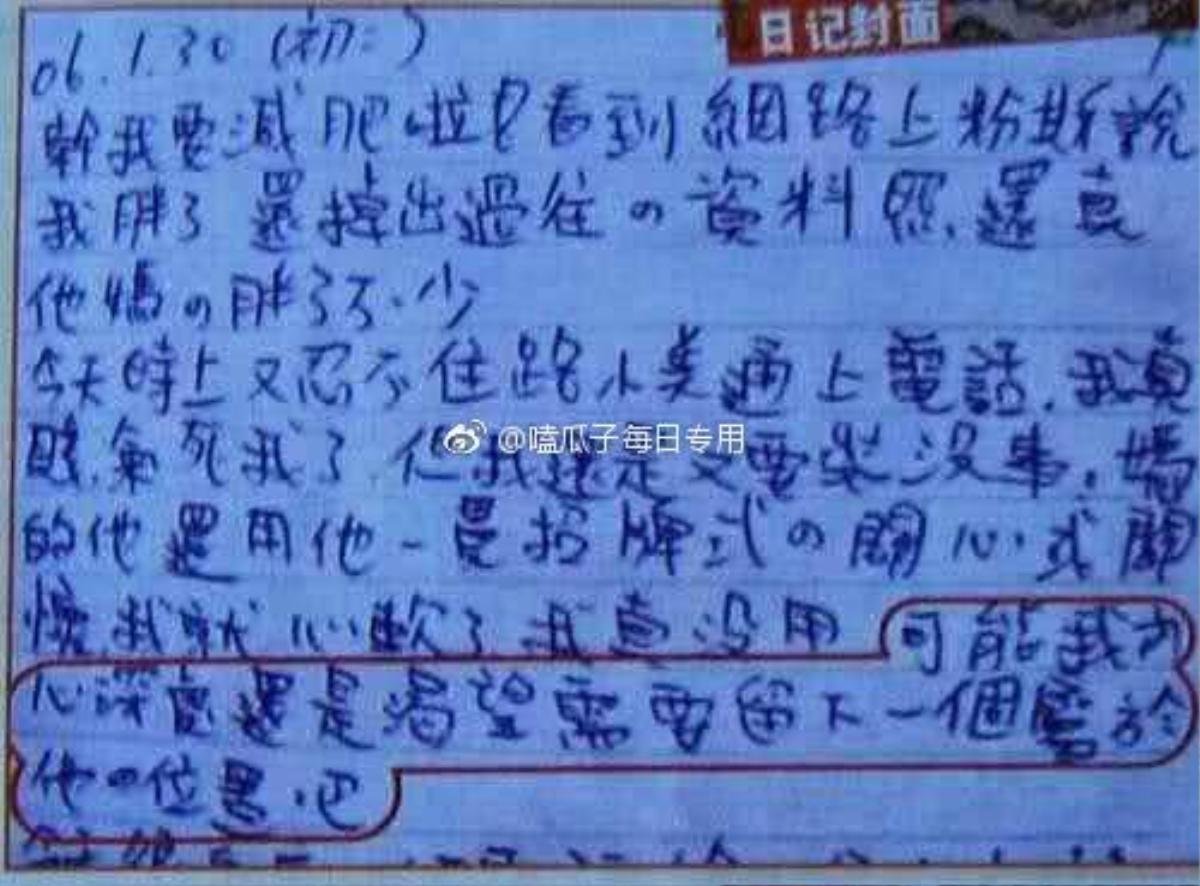 日记封面
06.1.30 (初二)
幹我要減肥啦!看到網路上粉斯說
我胖了還掉出過往の資料照.還真
他媽の胖了不少
今天時上又忍不住跟小美通上電話.我真
賤.氣死我了.但我還是又要裝沒事.媽
的他還用他一貫招牌式の關心式關
懷.我就心軟了我真沒用 可能我內
心深處還是渴望需要留下一個屬於
他の位置.吧
@嗑瓜子每日专用